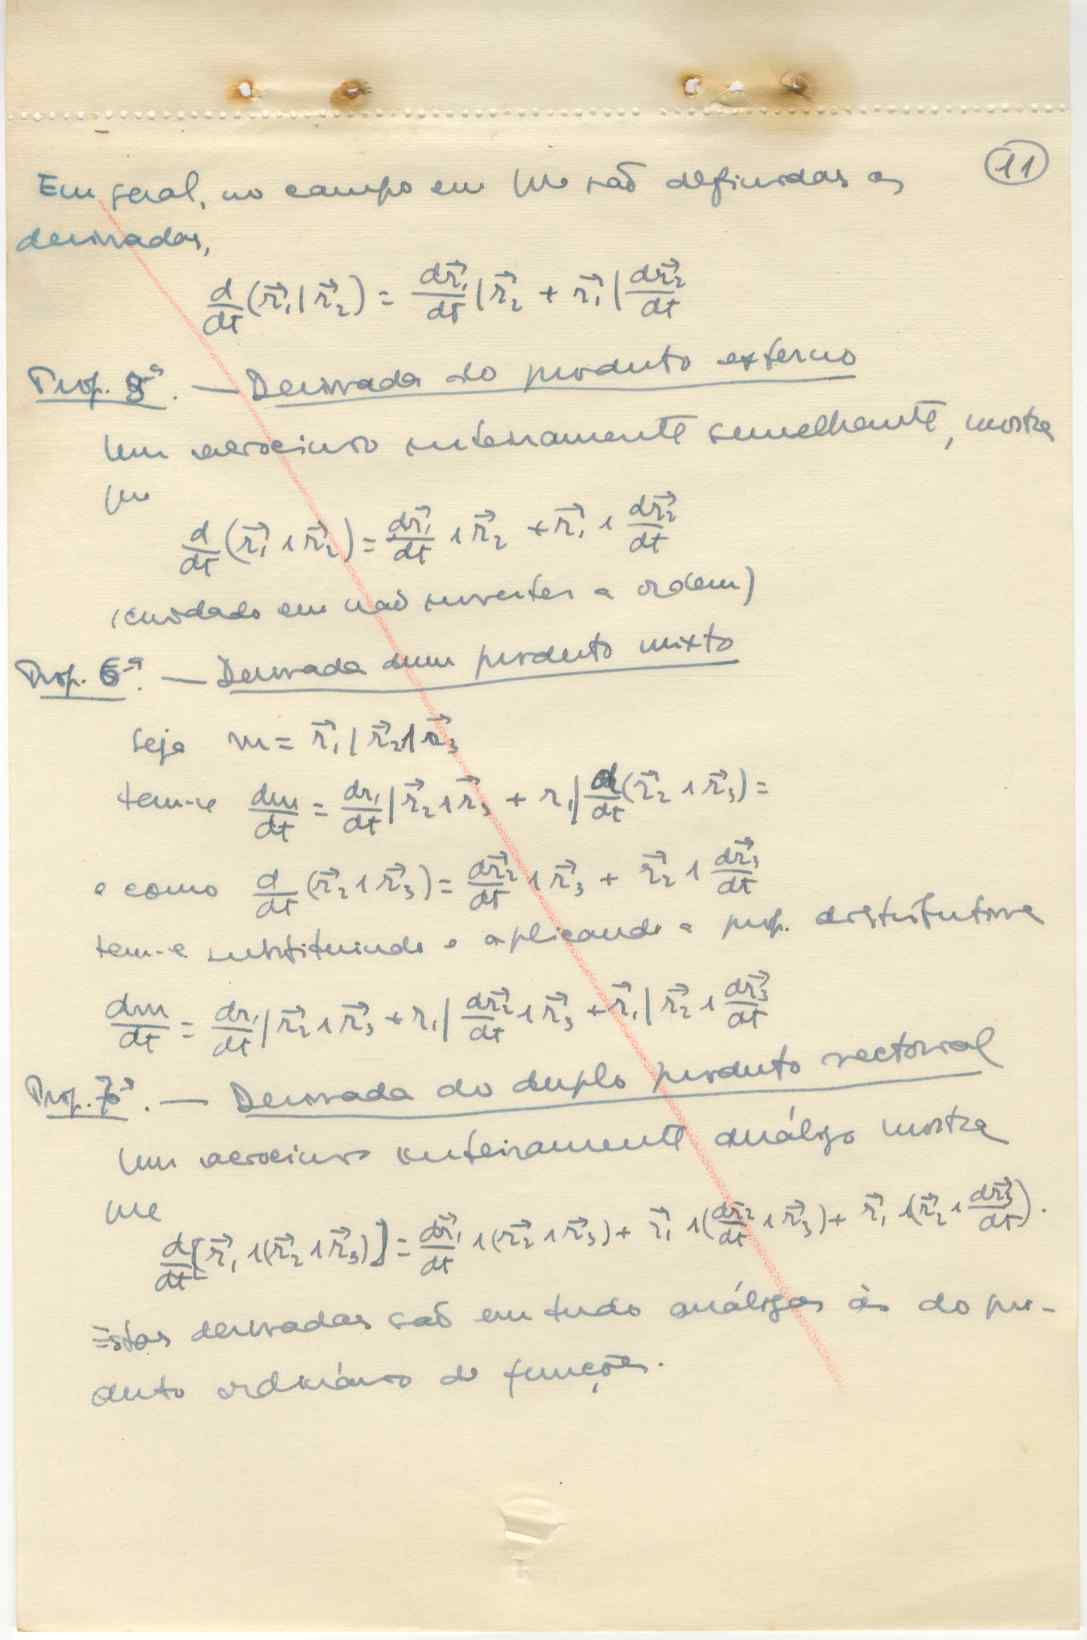 11
Em geral, no campo em que são definidas as
derivadas,
d/dt (r⃗₁ | r⃗₂) = dr⃗₁/dt | r⃗₂ + r⃗₁ | dr⃗₂/dt
Prop. 5ª. — Derivada do produto externo
Um raciocínio inteiramente semelhante, mostra
que
d/dt (r⃗₁ ∧ r⃗₂) = dr⃗₁/dt ∧ r⃗₂ + r⃗₁ ∧ dr⃗₂/dt
(cuidado em não inverter a ordem)
Prop. 6ª. — Derivada dum produto mixto
Seja m = r⃗₁ | r⃗₂ ∧ r⃗₃
tem-se dm/dt = dr₁/dt | r⃗₂ ∧ r⃗₃ + r₁ | d/dt (r⃗₂ ∧ r⃗₃) =
e como d/dt (r⃗₂ ∧ r⃗₃) = dr⃗₂/dt ∧ r⃗₃ + r⃗₂ ∧ dr⃗₃/dt
tem-se substituindo e aplicando a prop. distributiva
dm/dt = dr₁/dt | r⃗₂ ∧ r⃗₃ + r₁ | dr⃗₂/dt ∧ r⃗₃ + r⃗₁ | r⃗₂ ∧ dr⃗₃/dt
Prop. 7ª. — Derivada do duplo produto vectorial
Um raciocínio inteiramente análogo mostra
que
d/dt [r⃗₁ ∧ (r⃗₂ ∧ r⃗₃)] = dr⃗₁/dt ∧ (r⃗₂ ∧ r⃗₃) + r⃗₁ ∧ (dr⃗₂/dt ∧ r⃗₃) + r⃗₁ ∧ (r⃗₂ ∧ dr⃗₃/dt).
Estas derivadas são em tudo análogas às do pro-
duto ordinário de funções.